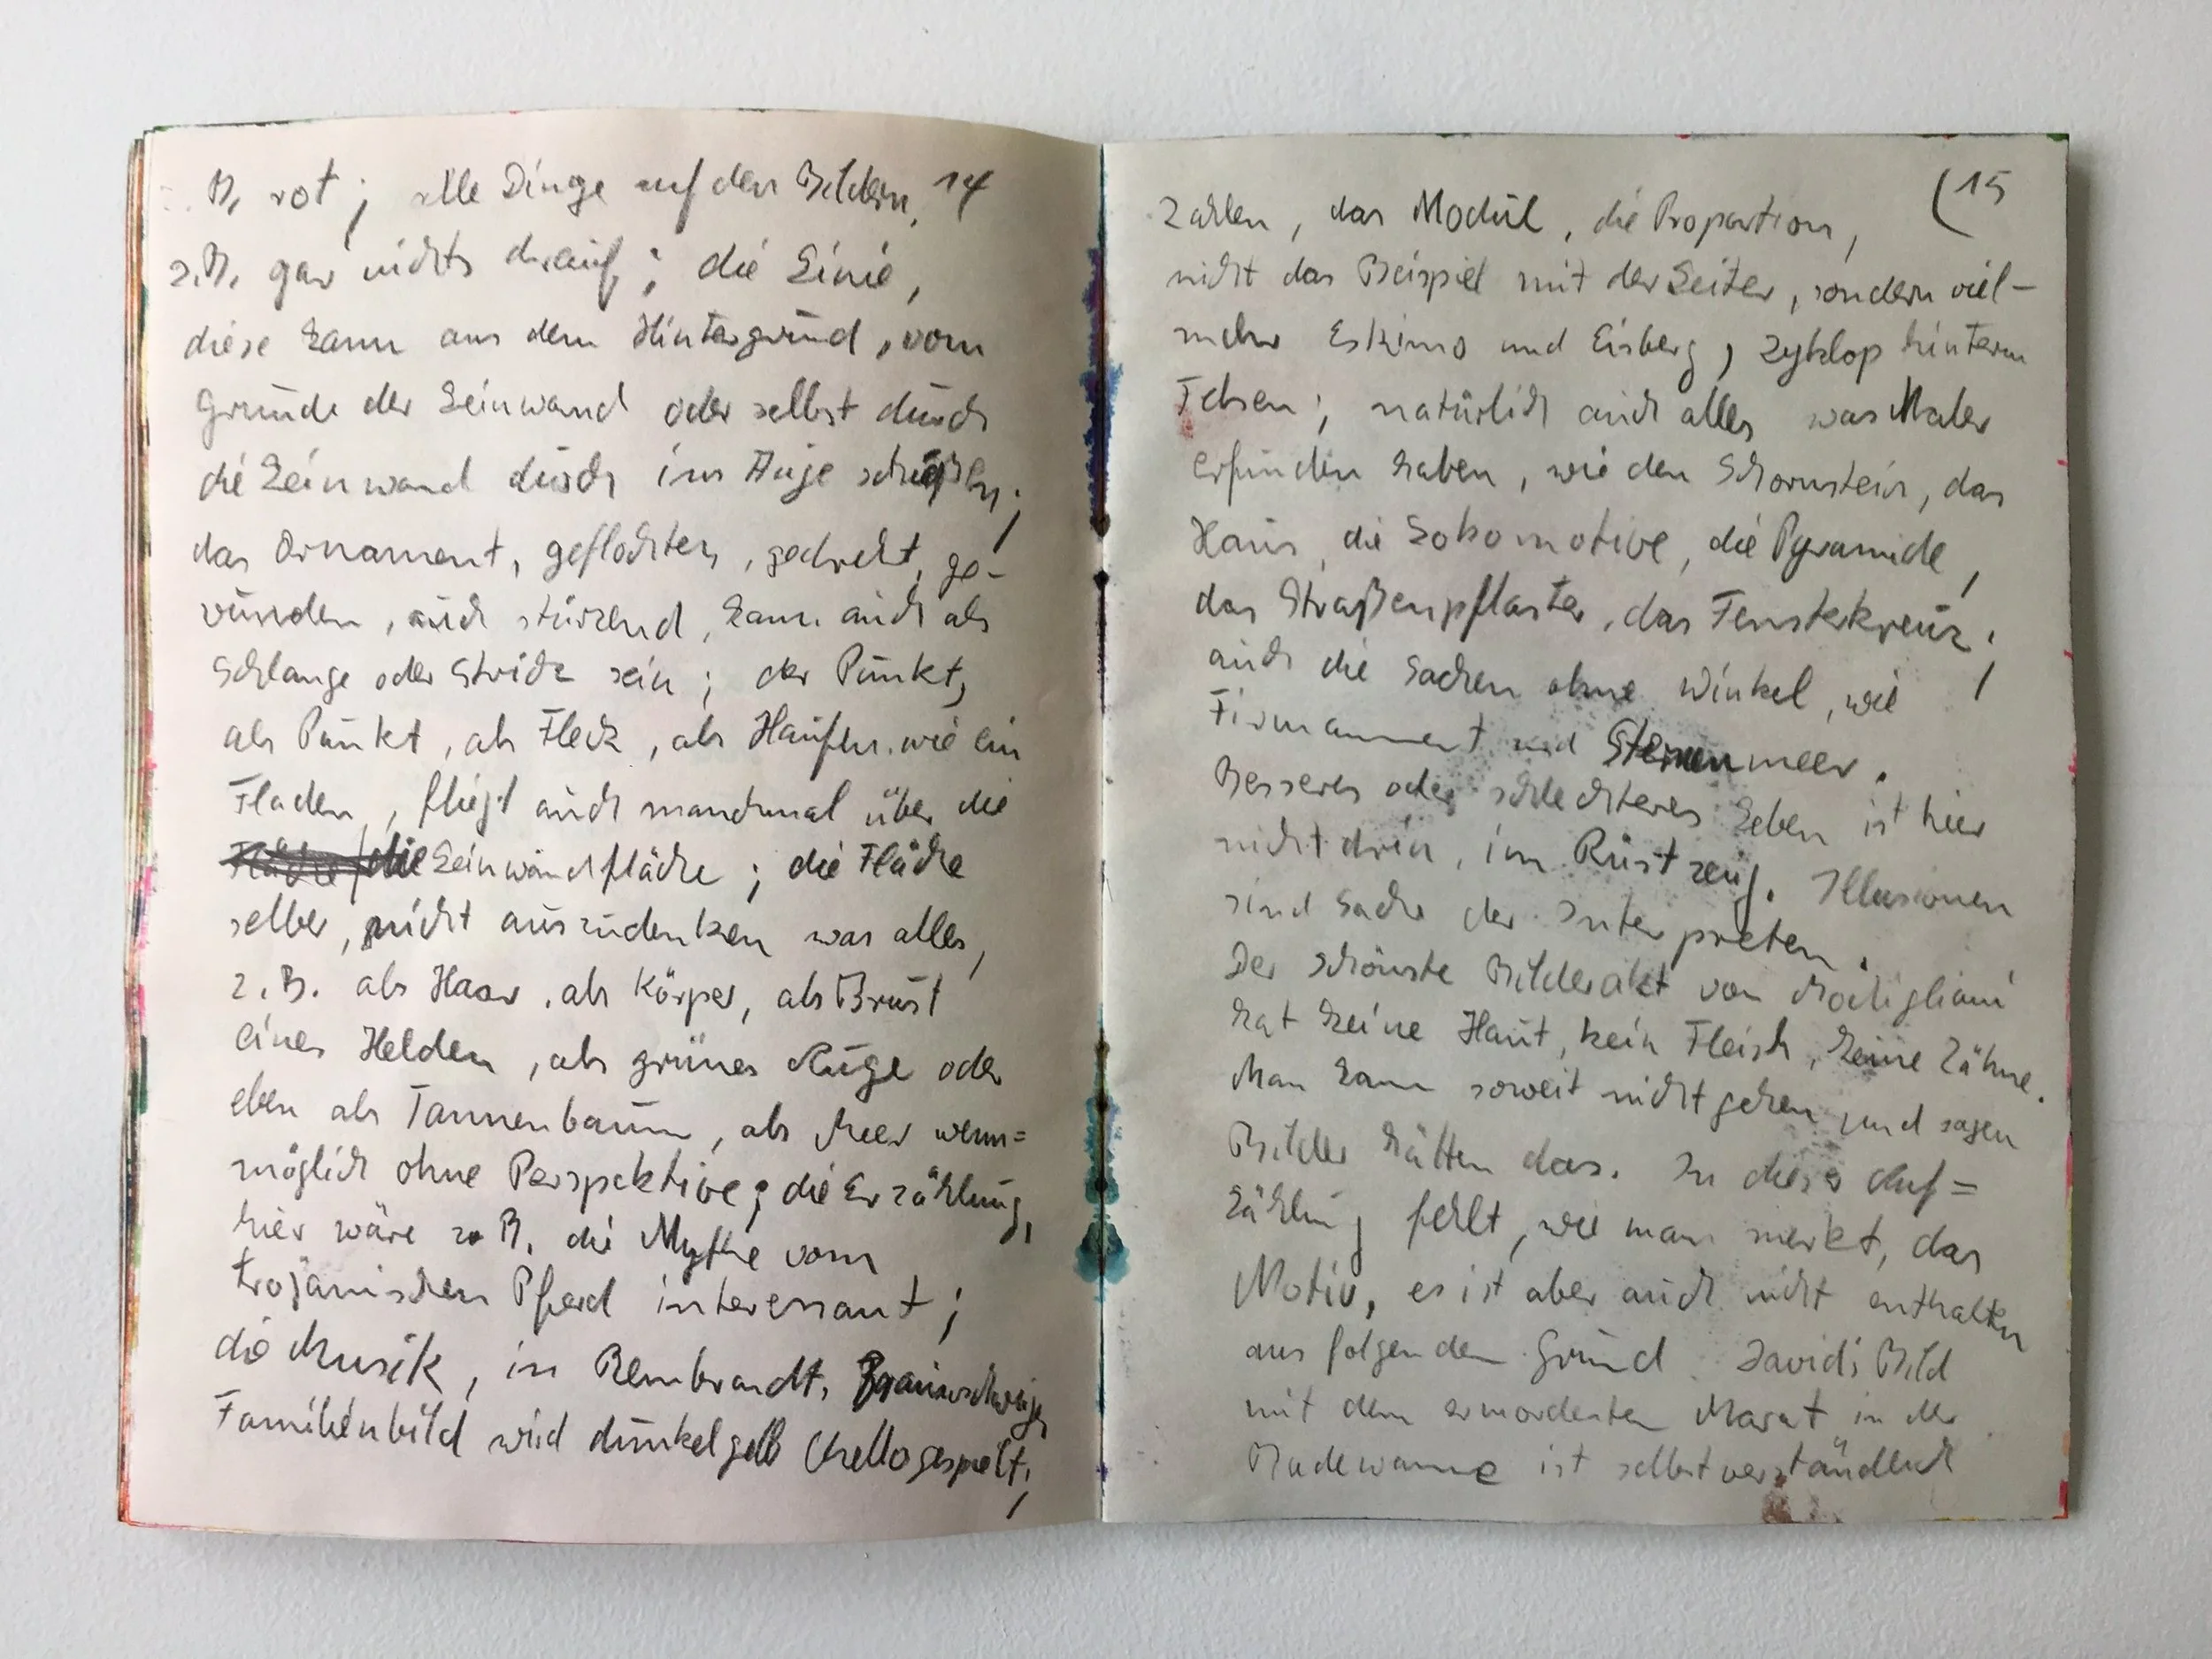 B. rot; alle Dinge auf den Bildern, 14
z.B. gar nichts drauf; die Linie,
diese kann aus dem Hintergrund, vom
Grunde der Leinwand oder selbst durch
die Leinwand durch ins Auge schießen;
das Ornament, geflochten, gedreht, ge-
wunden, auch stürzend, kann auch als
Schlange oder Strick sein; der Punkt,
als Punkt, als Fleck, als Haufen wie ein
Fladen, fliegt auch manchmal über die
die Leinwandfläche; die Fläche
selber, nicht auszudenken was alles,
z.B. als Haar, als Körper, als Brust
eines Helden, als grünes Auge oder
eben als Tannenbaum, als Meer wenn=
möglich ohne Perspektive; die Erzählung,
hier wäre z.B. die Mythe vom
trojanischen Pferd interessant;
die Musik, in Rembrandts Braunschweiger
Familienbild wird dunkelgelb Chello gespielt;
(15
Zahlen, das Modul, die Proportion,
nicht das Beispiel mit der Leiter, sondern viel-
mehr Eskimo und Eisberg, Zyklop hinterm
Felsen; natürlich auch alles was Maler
erfunden haben, wie den Schornstein, das
Haus, die Lokomotive, die Pyramide,
das Straßenpflaster, das Fensterkreuz;
auch die Sachen ohne Winkel, wie
Firmament und Sternenmeer.
Besseres oder schlechteres Leben ist hier
nicht drin, im Rüstzeug. Illusionen
sind Sache der Interpreten.
Der schönste Bilderakt von Modigliani
hat keine Haut, kein Fleisch, keine Zähne.
Man kann soweit nicht gehen und sagen
Bilder hätten das. In dieser Auf=
zählung fehlt, wie man merkt, das
Motiv, es ist aber auch nicht enthalten
aus folgendem Grund. Davids Bild
mit dem ermordeten Marat in der
Badewanne ist selbstverständlich